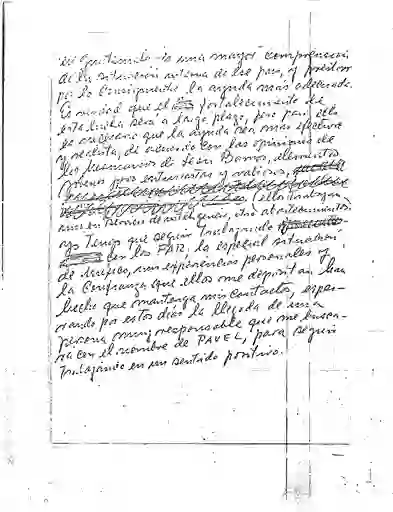 en Guatemala - la una mayor comprensión
de la situación interna de ese país, y prestar
por lo consiguiente la ayuda más adecuada.
Es verdad que el fortalecimiento de
esta lucha será a largo plazo, pero para ello
es necesario que la ayuda sea más efectiva
y de acuerdo con las opiniones de
los hermanos de León Barros, elementos
jóvenes y valiosos,
ellos trabajan
otro abastecimientos
yo tengo que seguir trabajando
con las FAR. la especial situación
de mis experiencias personales y
la confianza que ellos me depositan, han
hecho que mantenga mis contactos, espe-
rando por estos días la llegada de una
persona muy responsable que me busca-
ra con el nombre de PAVEL, para seguir
trabajando en un sentido positivo.